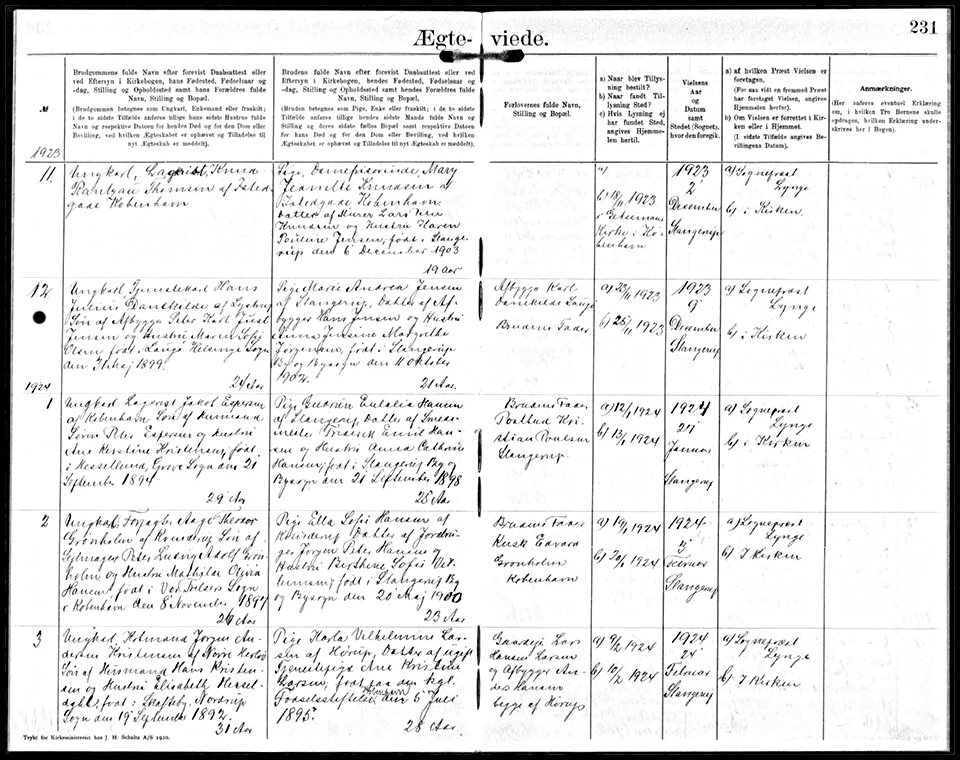 231
Ægte- viede.
№
Brudgommens fulde Navn efter forevist Daabsattest eller
ved Eftersyn i Kirkebogen, hans Fødested, Fødselsaar og
-dag, Stilling og Opholdssted samt hans Forældres fulde
Navn, Stilling og Bopæl.
(Brudgommen betegnes som Ungkarl, Enkemand eller fraskilt;
i de to sidste Tilfælde anføres tillige hans sidste Hustrus fulde
Navn og respektive Datoen for hendes Død og for den Dom eller
Bevilling, ved hvilken Ægteskabet er ophævet og Tilladelse til
nyt Ægteskab er meddelt).
Brudens fulde Navn efter forevist Daabsattest eller ved
Eftersyn i Kirkebogen, hendes Fødested, Fødselsaar og
-dag, Stilling og Opholdssted samt hendes Forældres fulde
Navn, Stilling og Bopæl.
(Bruden betegnes som Pige, Enke eller fraskilt; i de to sidste
Tilfælde anføres tillige hendes sidste Mands fulde Navn og
Stilling og deres sidste fælles Bopæl samt respektive Datoen
for hans Død og for den Dom eller Bevilling, ved hvilken
Ægteskabet er ophævet og Tilladelse til nyt Ægteskab er meddelt).
Forlovernes fulde Navn,
Stilling og Bopæl.
a) Naar blev Tillys-
ning bestilt?
b) Naar fandt Til-
lysning Sted?
c) Hvis Lysning ej
har fundet Sted,
angives Hjemme-
len hertil.
Vielsens
Aar
og
Datum
samt
Stedet (Sognet),
hvor den foregik.
a) af hvilken Præst Vielsen er
foretagen,
(For saa vidt en fremmed Præst
har foretaget Vielsen, angives
Hjemmelen herfor).
b) Om Vielsen er forrettet i Kir-
ken eller i Hjemmet.
(I sidste Tilfælde angives Be-
villingens Datum).
Anmærkninger.
(Her anføres eventuel Erklæring
om, i hvilken Tro Børnene skulle
opdrages, hvilken Erklæring under-
skrives her i Bogen).
1923
11.
Ungkarl, Knud
Rantzau Thomsen af Isted-
gade København
Pige, Damefriserinde, Mary
Jeanette Knudsen af
Istedgade København
Datter af Murer Lars Peter
Knudsen og Hustru Maren
Pouline Jensen, født i Slange-
rup den 6 December 1903
19 Aar
a)
b) 18/11 1923
i Getsemane
Kirke i Kø-
benhavn
1923
2
December
Slangerup
a) Sognepræst
Lynge
b) i Kirken.
12
Ungkarl, Tjenestekarl Hans
Julius Damskilde af Lystrup
Søn af Aftægter Peter Karl Just
Jensen og Hustru Maren Sofie
Olsen, født i Laugø Helsinge Sogn
den Maj 1899.
24 Aar
Pige Marie Andrea Jensen
af Slangerup, Datter af Af-
bygger Hans Jensen og Hustru
Anna Jensine Margrethe
Jørgensen, født i Slangerup
By og Bysogn den 11 Oktober
1902.
21 Aar.
Afbygger Karl
Damskilde Laugø
Brudens Fader
a) 23/11 1923
b) 25/11 1923
1923
9
December
Slangerup
a) Sognepræst
Lynge
b) i Kirken
1924
1
Ungkarl Lagerist Jakob Espersen
af København Søn af Husmand
Søren Peter Espersen og Hustru
Ane Kirstine Kristensen, født
i Hessellund, Grove Sogn den 21
September 1894
29 Aar
Pige Gudrun Eulalia Hansen
af Slangerup, Datter af Smede-
mester Frederik Emil Han-
sen og Hustru Anna Cathrine
Hansen, født i Slangerup By og
Bysogn den 21 September 1898
25 Aar
Brudens Fader
Postbud Kri-
stian Poulsen
Slangerup.
a) 12/1 1924
b) 13/1 1924
1924
27
Januar
Slangerup
a) Sognepræst
Lynge
b) i Kirken
2
Ungkarl, Forpagter Aage Theodor
Grønholm af Søn af
Peter Ludvig Adolf Grøn-
holm og Hustru Mathilde Olivia
Hansen, født i Vor Frelsers Sogn
i København den 8 November 1897
26 Aar
Pige Ella Sofie Hansen af
Datter af
Jørgen Peter Hansen og
Hustru Birthine Sofie Vil-
lumsen, født i Slangerup By
og Bysogn den 20 Maj 1900
23 Aar
Brudens Fader
Kusk Edvard
Grønholm
København
a) 19/1 1924
b) 20/1 1924
1924
5
Februar
Slangerup
a) Sognepræst
Lynge
b) I Kirken
3
Ungkarl, Husmand Jørgen An-
dersen Kristensen af Nørre Herlev
Søn af Husmand Hans Kristen-
sen og Hustru Elisabeth Hessel-
dahl, født i Nordrup
Sogn den 19 September 1892.
31 Aar
Pige Karla Vilhelmine Lar-
sen af Hørup, Datter af ugift
Tjenestepige Ane Kristine
Larsen, født paa den kgl.
Fødselsstiftelse Kbhvn den 5 Juli
1895.
28 Aar.
Gaardejer Lars
Hansen Larsen
og Afbygger An-
ders Hansen
begge af Hørup
a) 9/2 1924
b) 10/2 1924
1924
24
Februar
Slangerup
a) Sognepræst
Lynge
b) I Kirken
Trykt for Kirkeministeriet hos J. H. Schultz A/S 1920.